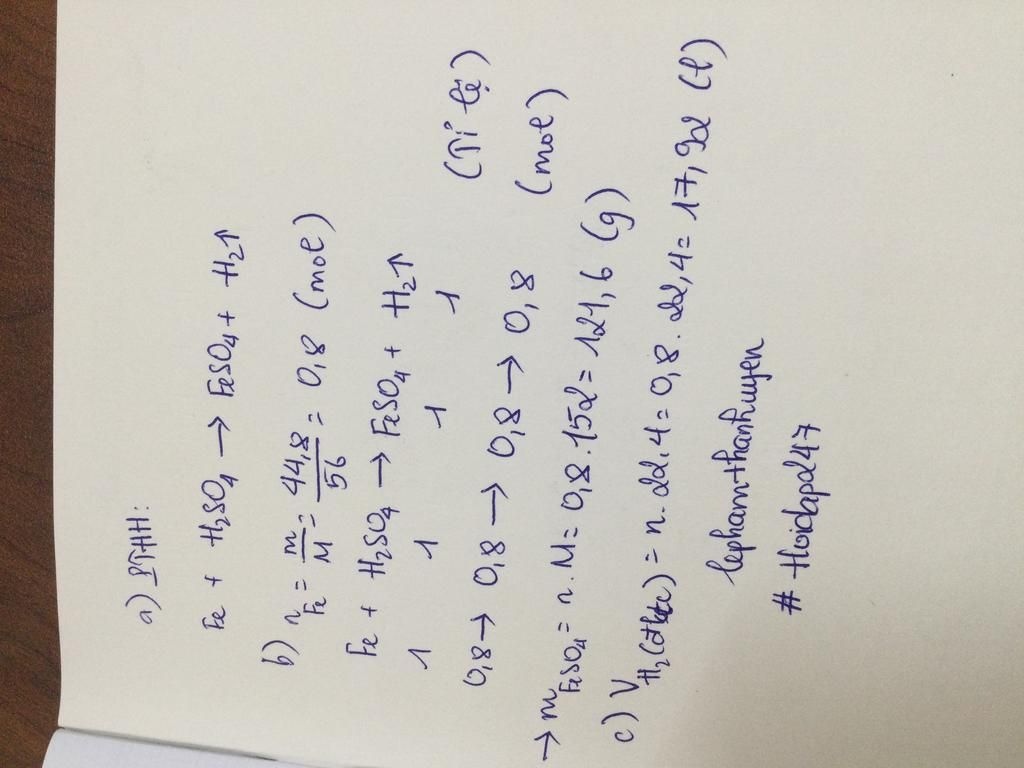 a) PTHH:
Fe + H₂SO₄ → FeSO₄ + H₂↑
b) n_Fe = m/M = 44,8/56 = 0,8 (mol)
Fe + H₂SO₄ → FeSO₄ + H₂↑
1 1 1 1 (Tỉ lệ)
0,8 → 0,8 → 0,8 → 0,8 (mol)
→ m_FeSO₄ = n.M = 0,8.152 = 121,6 (g)
c) V_H₂(đktc) = n.22,4 = 0,8.22,4 = 17,92 (l)
lephamthanhuyen
# Hoidap247